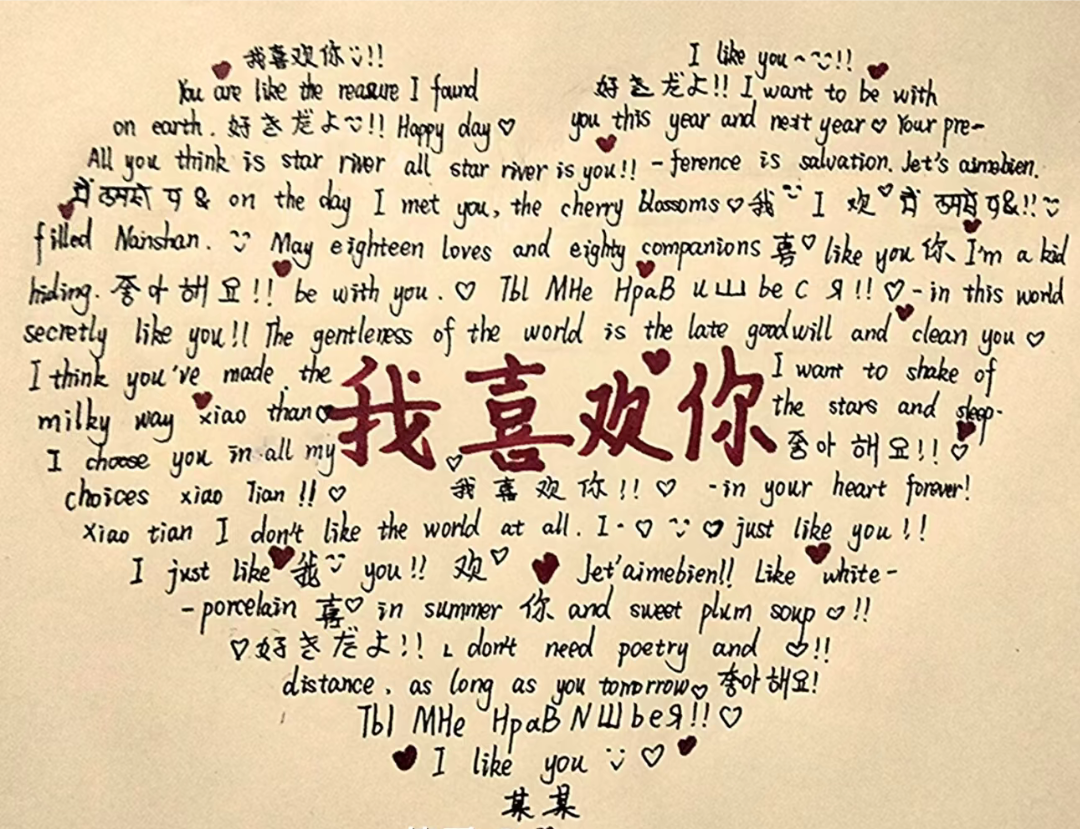 我喜欢你!!
I like you~!!
You are like the reasure I found
好きだよ!! I want to be with
on earth. 好きだよ!! Happy day♡
you this year and next year♡ Your pre-
All you think is star river all star river is you!!
-ference is salvation. Jet's aimebien.
मैं & on the day I met you, the cherry blossoms♡我 I 欢♡ मैं &!!
filled Nanshan. May eighteen loves and eighty companions 喜♡like you 你 I'm a kid
hiding. 좋아해요!! be with you. ♡ Tbl MHe HpaB и Ш be C Я!! ♡-in this world
secretly like you!! The gentleness of the world is the late goodwill and clean you♡
I think you've made the
milky way xiao than♡
I choose you in all my
choices xiao Tian!! ♡
我喜欢你
I want to shake of
the stars and sleep-
좋아해요!!♡
♡
我喜欢你!! ♡ -in your heart forever!
xiao tian I don't like the world at all. I-♡ ♡ just like you!!
I just like♥我 you!! 欢♡ ♥ Jet'aimebien!! Like white-
-porcelain 喜♡ in summer 你 and sweet plum soup♡!!
♡好きだよ!! I don't need poetry and ♡!!
distance, as long as you tomorrow♡ 좋아해요!
Tbl MHe HpaB N Ш be Я!!♡
♥ I like you ♡ ♥
某某